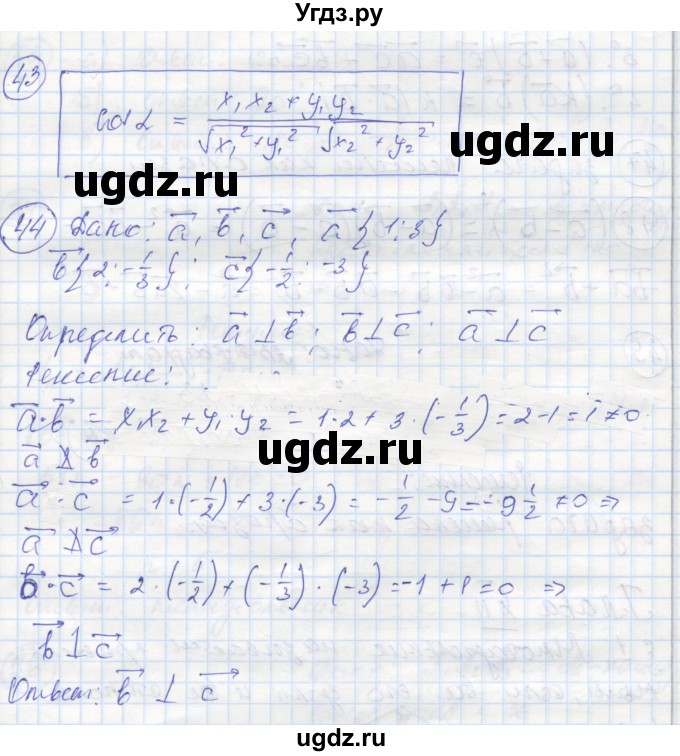 Угдз.ру
43
cos α = x₁x₂ + y₁y₂ / √x₁²+y₁² √x₂²+y₂²
ugdz.ru ugdz.ru
44 Дано: a⃗, b⃗, c⃗, a⃗{1;3}
b⃗{2;-1/3}; c⃗{-1/2; -3}
Определить: a⃗⊥b⃗; b⃗⊥c⃗; a⃗⊥c⃗
Решение:
a⃗·b⃗ = x₁x₂ + y₁·y₂ = 1·2 + 3·(-1/3) = 2-1 = 1 ≠ 0.
a⃗ ⊥̸ b⃗
ugdz.ru ugdz.ru
a⃗·c⃗ = 1·(-1/2) + 3·(-3) = -1/2 - 9 = -9 1/2 ≠ 0 ⇒
a⃗ ⊥̸ c⃗
b⃗·c⃗ = 2·(-1/2) + (-1/3)·(-3) = -1 + 1 = 0 ⇒
b⃗⊥c⃗
ugdz.ru ugdz.ru
Ответ: b⃗ ⊥ c⃗